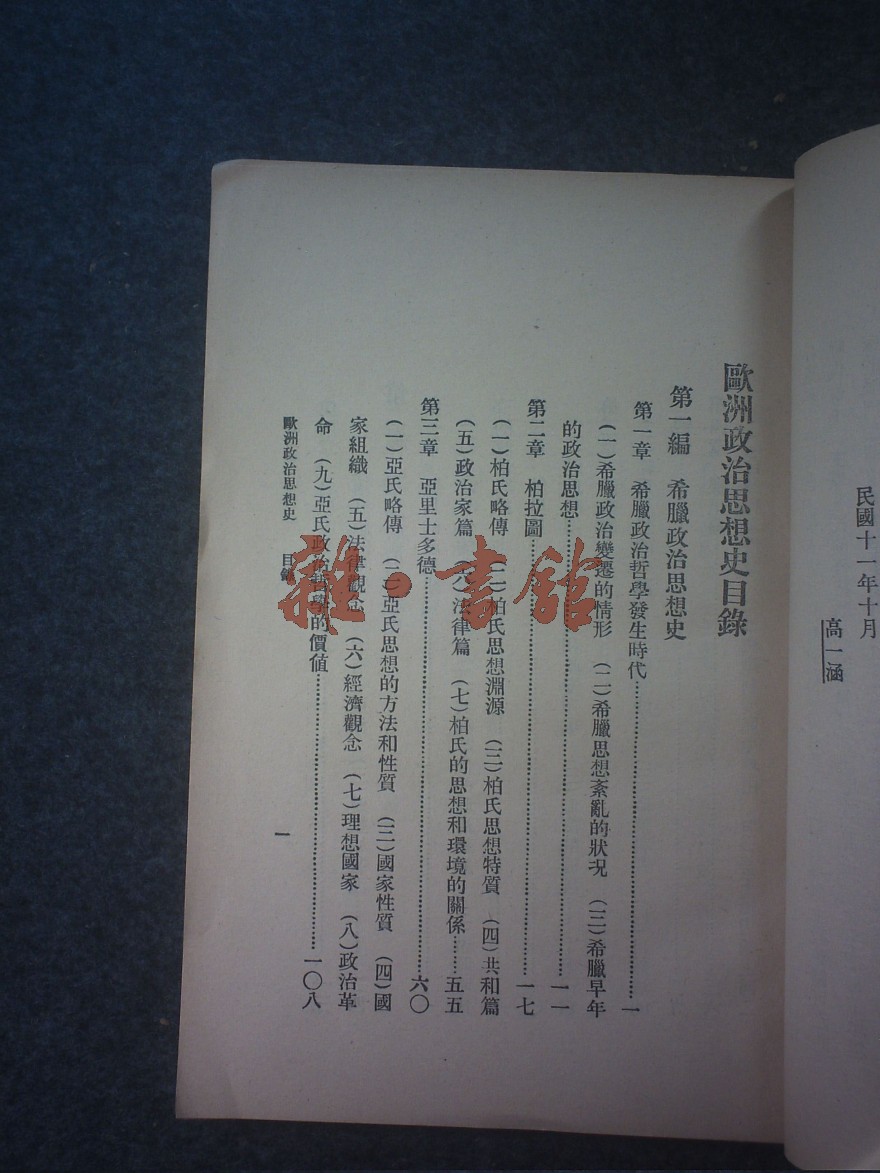 民國十一年十月
高一涵
歐洲政治思想史目錄
第一編　希臘政治思想史
第一章　希臘政治哲學發生時代……一
（一）希臘政治變遷的情形　（二）希臘思想紊亂的狀況　（三）希臘早年
的政治思想……一一
第二章　柏拉圖……一七
（一）柏氏略傳　（二）柏氏思想淵源　（三）柏氏思想特質　（四）共和篇
（五）政治家篇　（六）法律篇　（七）柏氏的思想和環境的關係……五五
第三章　亞里士多德……六〇
（一）亞氏略傳　（二）亞氏思想的方法和性質　（三）國家性質　（四）國
家組織　（五）法律觀念　（六）經濟觀念　（七）理想國家　（八）政治革
命　（九）亞氏政治哲學的價值……一〇八
歐洲政治思想史　目錄
一
雜·書館